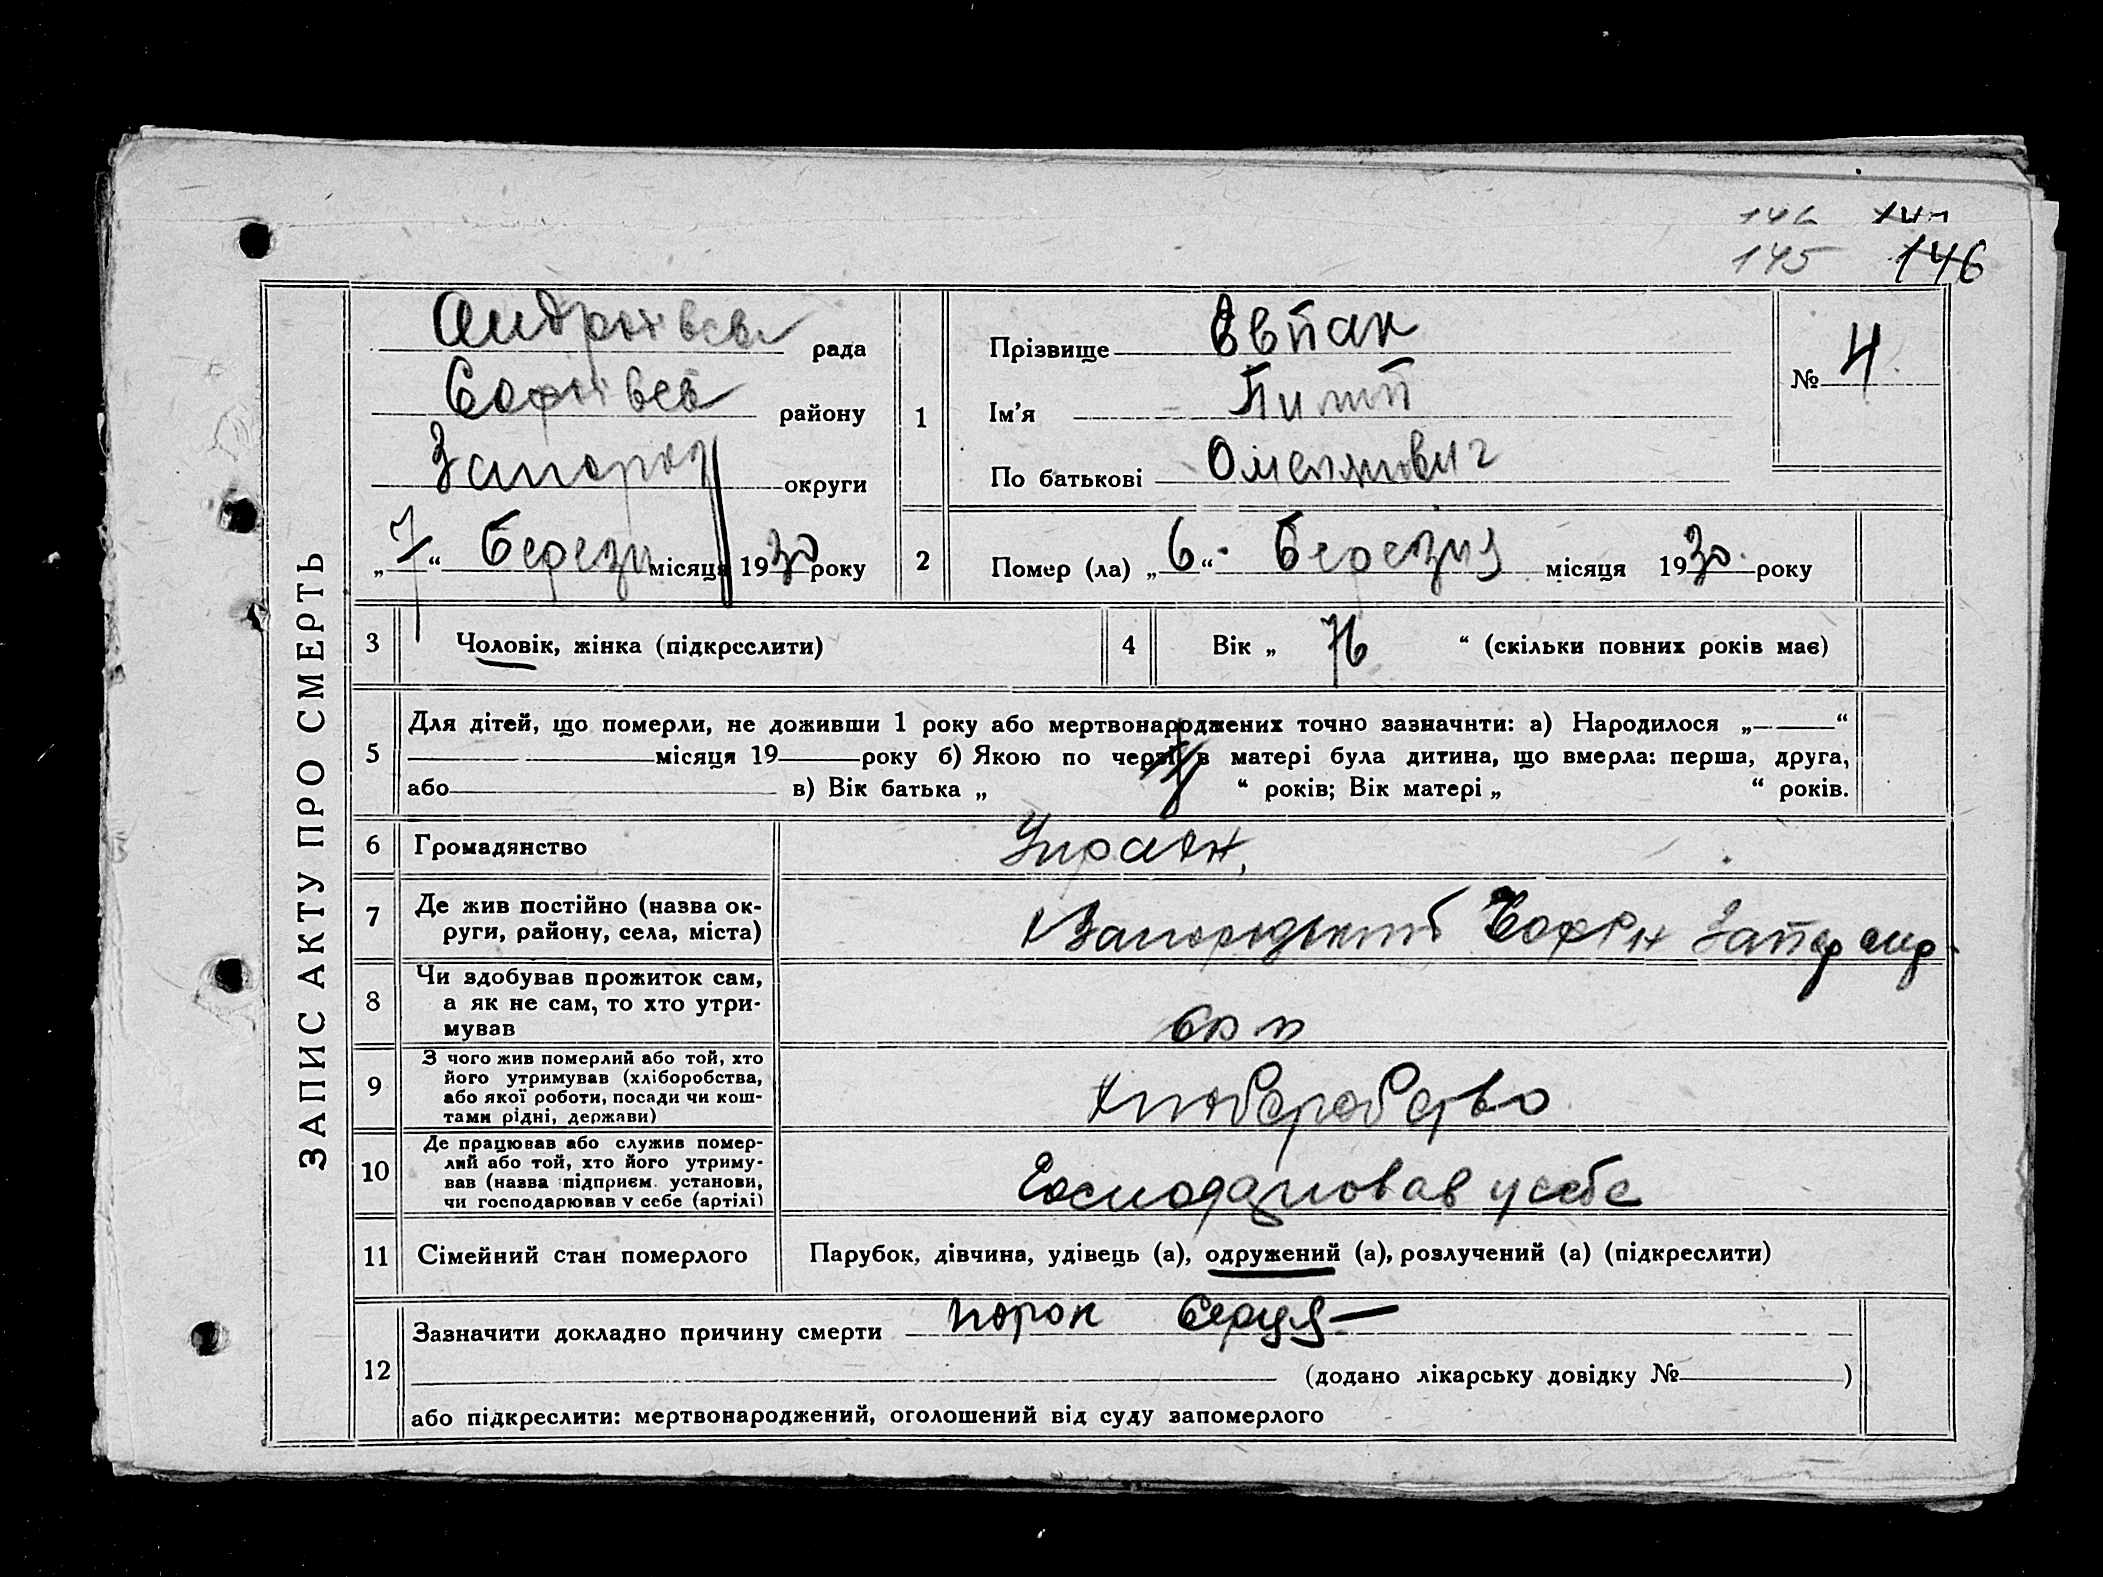 146 147
145 146
ЗАПИС АКТУ ПРО СМЕРТЬ
Андріївсь рада
Софіївсь району
Запоріз округи
„7“ Березн місяця 1930 року
1
Прізвище Євпак
Ім’я Пилип
По батькові Омелянович
№ 4
2
Помер (ла) „6“ Березня місяця 1930 року
3 Чоловік, жінка (підкреслити)
4 Вік „ 76 “ (скільки повних років має)
5 Для дітей, що померли, не доживши 1 року або мертвонароджених точно зазначити: а) Народилося „ “
місяця 19 року б) Якою по черзі в матері була дитина, що вмерла: перша, друга,
або в) Вік батька „ “ років; Вік матері „ “ років.
6 Громадянство Україн,
7 Де жив постійно (назва ок-
руги, району, села, міста)
8 Чи здобував прожиток сам,
а як не сам, то хто утри-
мував
сам
9 З чого жив померлий або той, хто
його утримував (хліборобства,
або якої роботи, посади чи кош-
тами рідні, держави)
Хліборобство
10 Де працював або служив помер-
лий або той, хто його утриму-
вав (назва підприєм. установи,
чи господарював у себе (артілі)
Господарював у себе
11 Сімейний стан померлого Парубок, дівчина, удівець (а), одружений (а), розлучений (а) (підкреслити)
12 Зазначити докладно причину смерти порок серця —
(додано лікарську довідку № )
або підкреслити: мертвонароджений, оголошений від суду запомерлого